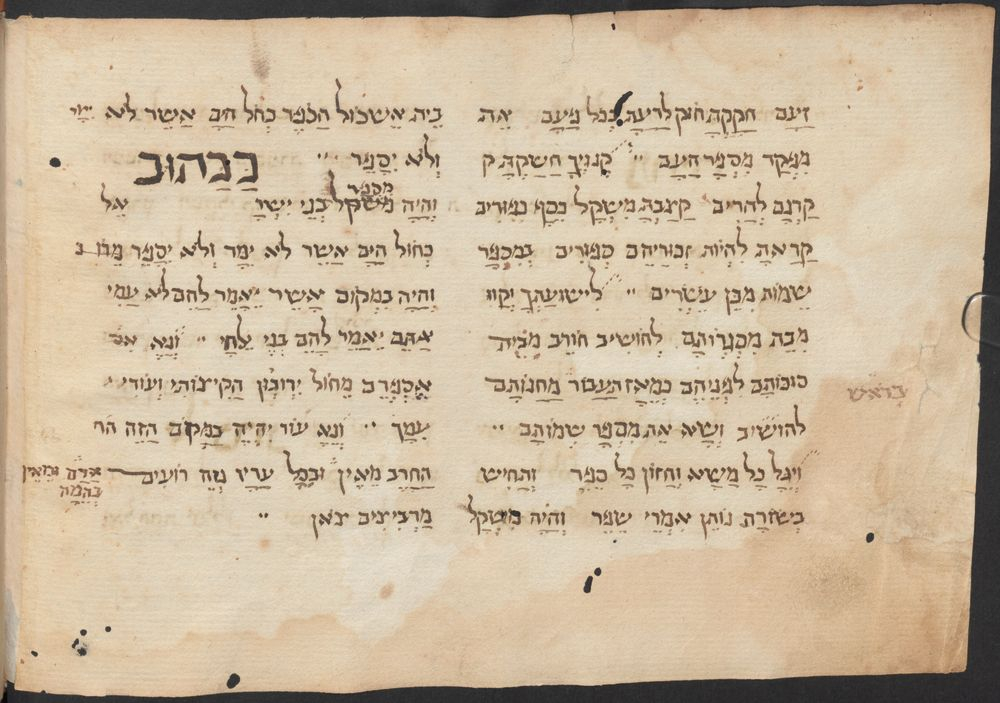 זועם חקקת חוק לריעה בכל פעם את
מפקד מספר העם קנינך חשקת ק
קרנם להרים קצבת משקל כסף כפורים
קראת להיות זכוריהם ספורים במכפר
שמות מבן עשרים לישועתך יקוו
מבת מסגרותם להושיב חורב מבית
סוכותם לפניהם כמאז תעבור מחנותם
להושיב ושא את מספר שמותם
ויגל כל משא וחזון כל כפר והחיש
בשורת נותן אמרי שפר והיה משקל
בית אשכול הכפר כחל הים אשר לא ימד
ולא יספר ככתוב
מספר
והיה משקל בני ישר אל
כחול הים אשר לא ימד ולא יספר
והיה במקום אשר יאמר להם לא עמי
אתם יאמר להם בני אל חי ונא אם
אספרם מחול ירובון הקיצותי ועודי
עמך ונא עוד יהיה במקום הזה הח
החרב מאין ובכל עריו נוה רועים
אדם ומאין
בהמה
מרביצים צאן
בראש